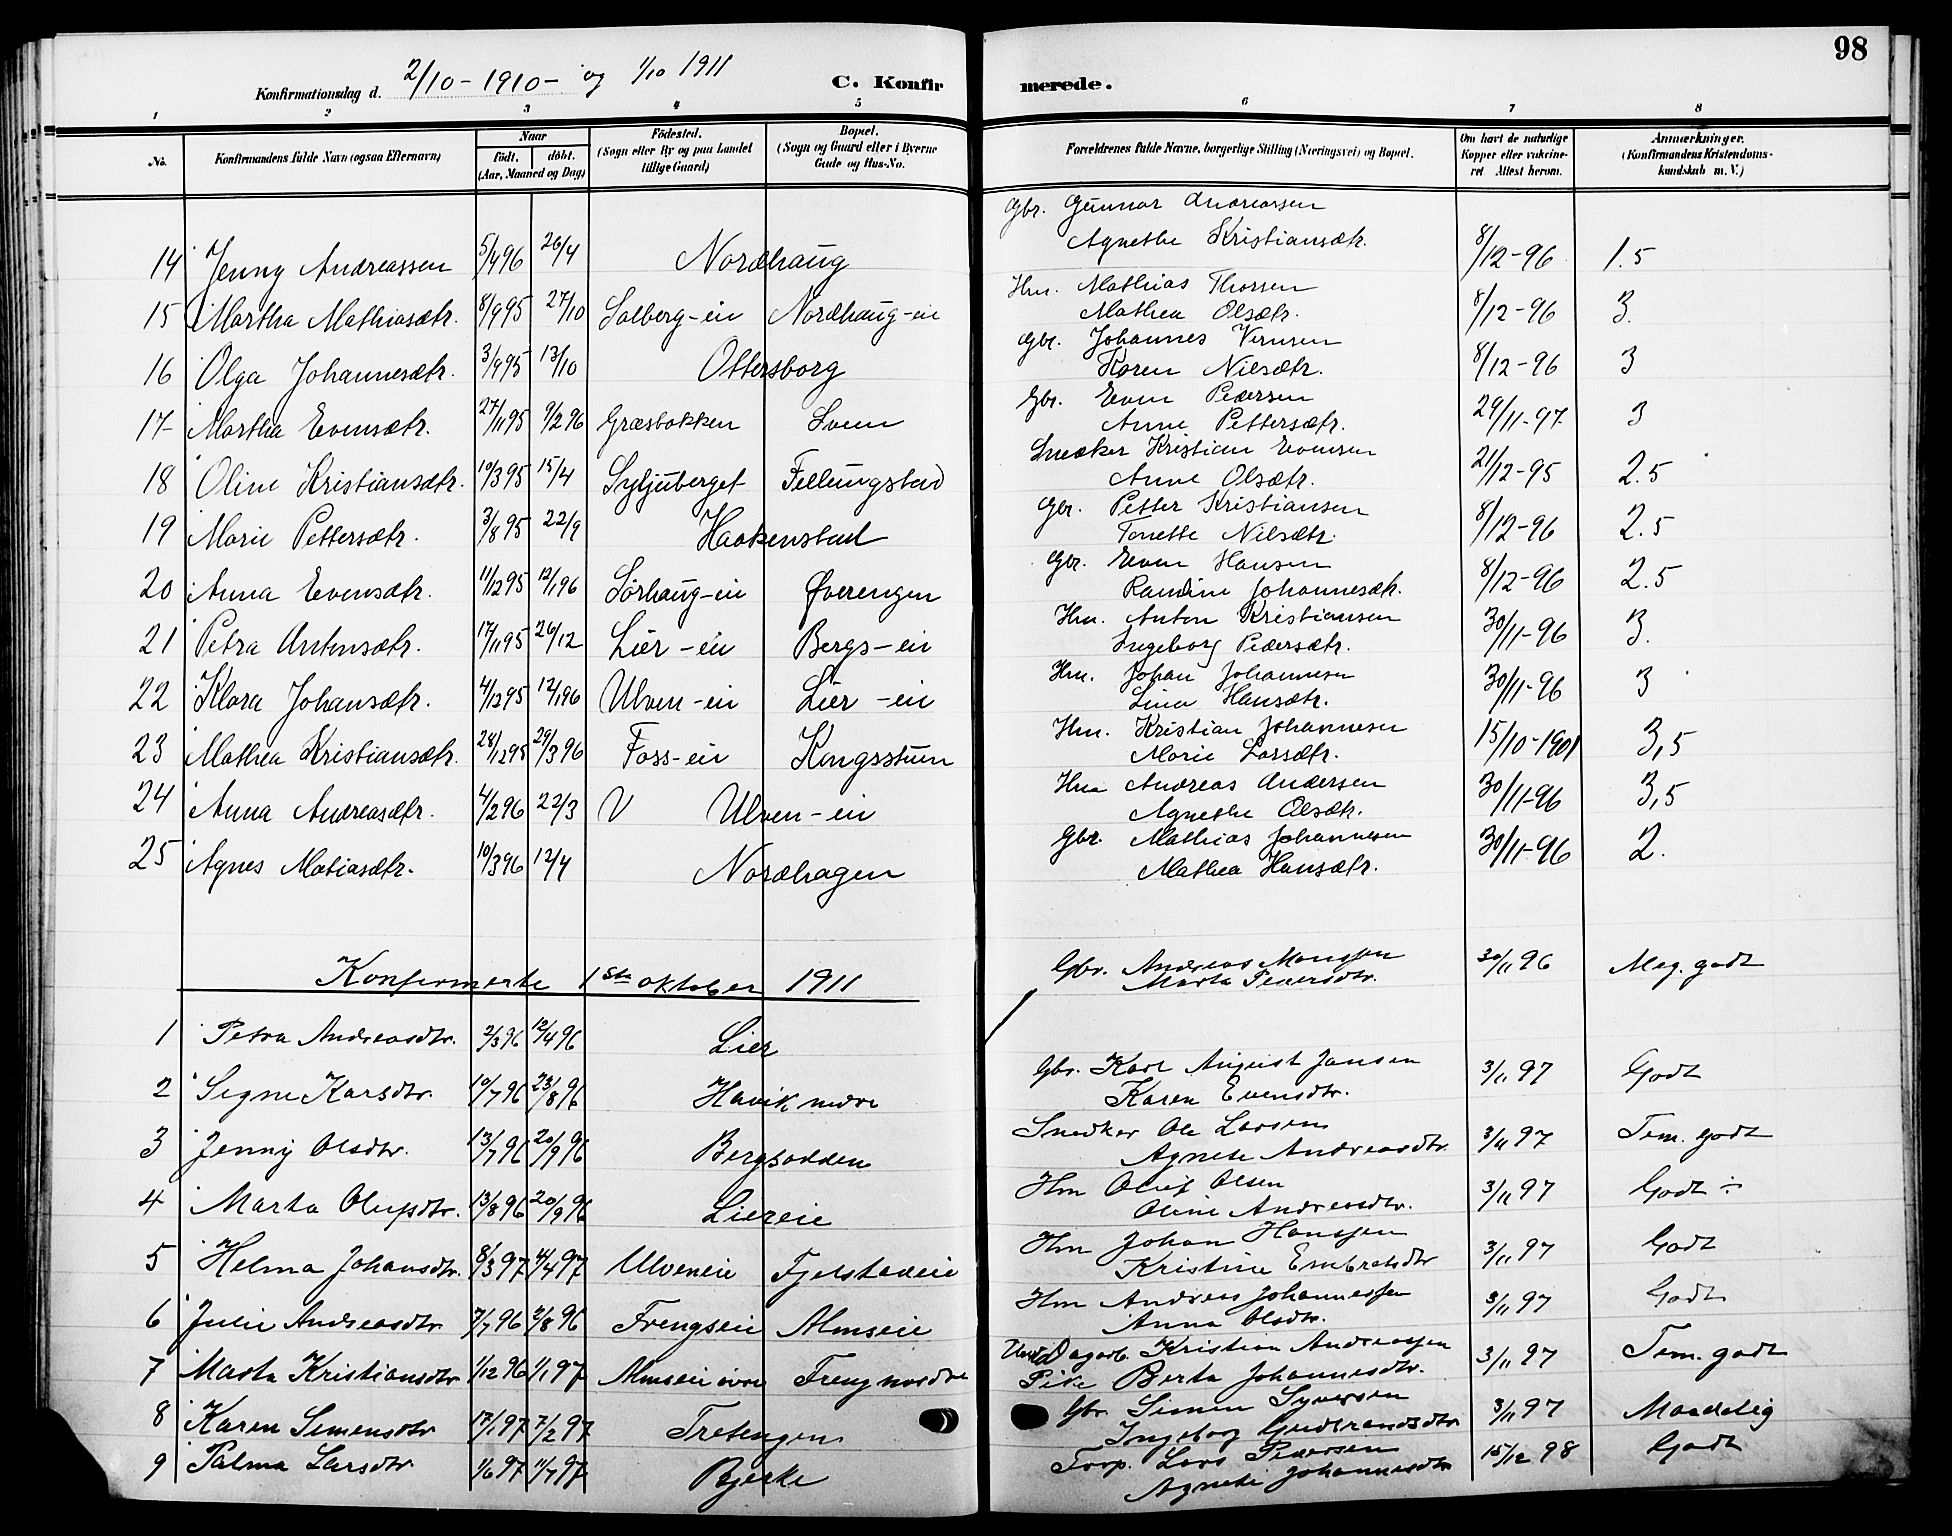 98
Konfirmationsdag d. 2/10 - 1910 - og 1/10 1911 C. Konfirmerede.
1 2 3 4 5 6 7 8
No. Konfirmandens fulde Navn (ogsaa Efternavn) Naar født. døbt. (Aar, Maaned og Dag) Fødested. (Sogn eller By og paa Landet tillige Gaard) Bopæl. (Sogn og Gaard eller i Byerne Gade og Hus-No. Forældrenes fulde Navne, borgerlige Stilling (Næringsvei) og Bopæl. Om havt de naturlige Kopper eller vakcineret Attest herom. Anmærkninger. (Konfirmandens Kristendomskundskab m. V.)
14 Jenny Andreassen 5/4 96 26/4 Nordhaug Gbr. Gunnar Andreassen
Agnethe Kristiansdtr. 8/12-96 1.5
15 Martha Mathiasdtr. 8/9 95 27/10 Solberg-ein Nordhaug-ein Hm. Mathias Thorsen
Mathea Olsdtr. 8/12-96 3.
16 Olga Johannesdtr. 3/9 95 13/10 Ottersborg Gbr. Johannes
Karen Nilsdtr. 8/12-96 3
17 Martha Evensdtr. 27/11 95 9/2 96 Græsbakken Sveen Gbr. Even Pedersen
Anne Pettersdtr. 29/11-97 3
18 Oline Kristiansdtr. 10/3 95 15/4 Syljuberget Fellungstad Snedker Kristian Evensen
Anne Olsdtr. 21/12-95 2.5
19 Marie Pettersdtr. 3/8 95 22/9 Haakenstad Gbr. Petter Kristiansen
Tonette Nilsdtr. 8/12-96 2.5
20 Anna Evensdtr. 11/12 95 12/1 96 Sørhaug-ein Øverengen Gbr. Even Hansen
Randine Johannesdtr. 8/12-96 2.5
21 Petra Antonsdtr. 17/11 95 26/12 Lier-ein Bergs-ein Hm. Anton Kristiansen
Ingeborg Pedersdtr. 30/11-96 3.
22 Klara Johansdtr. 4/12 95 12/1 96 Ulven-ein Lier-ein Hm. Johan Johannesen
Lina Hansdtr. 30/11-96 3
23 Mathea Kristiansdtr. 28/12 95 29/3 96 Foss-ein Kongsstuen Hm. Kristian Johannesen
Marie Larsdtr. 15/10-1901 3,5
24 Anna Andreasdtr. 4/2 96 22/3 V Ulven-ein Hm Andreas Andersen
Agnethe Olsdtr. 30/11-96 3,5
25 Agnes Matiasdtr. 10/3 96 12/4 Nordhagen Gbr. Mathias Johannesen
Mathea Hansdtr. 30/11-96 2.
Konfirmerte 1ste oktober 1911
1 Petra Andreasdtr. 2/3 96 12/4 96 Lier Gbr. Andreas Monssen
Marta Pedersdtr. 30/11 96 Meg. godt
2 Signe Karsdtr. 10/7 96 23/8 96 Havik nedre Gbr. Karl August Jansen
Karen Evensdtr. 3/11 97 Godt
3 Jenny Olsdtr. 13/7 96 20/9 96 Bergsodden Snedker Ole Larsen
Agnete Andreasdtr. 3/11 97 Tem. godt
4 Marta Olufsdtr. 13/8 96 20/9 96 Liereie Hm Oluf Olsen
Oline Andreasdtr. 3/11 97 Godt ÷
5 Helma Johansdtr. 8/3 97 4/4 97 Ulveneie Fjelstadeie Hm Johan Hanssen
Kristine Embretsdtr 3/11 97 Godt
6 Julie Andreasdtr 7/7 96 2/8 96 Frengseie Almseie Hm Andreas Johannessen
Anna Olsdtr. 3/11 97 Godt
7 Marta Kristiansdtr 1/12 96 1/1 97 Almseie øvre Freng nordre Dagarb. Kristian Andreassen
Pike Berta Johannesdtr. 3/11 97 Tem. godt
8 Karen Simensdtr 17/1 97 7/2 97 Tretengen Gbr Simen Syversen
Ingeborg Gudbrandsdtr 3/11 97 Maadelig
9 Palma Larsdtr 1/6 97 11/7 97 Bjerke Forp. Lars Pedersen
Agnete Johannesdtr 15/12 98 Godt